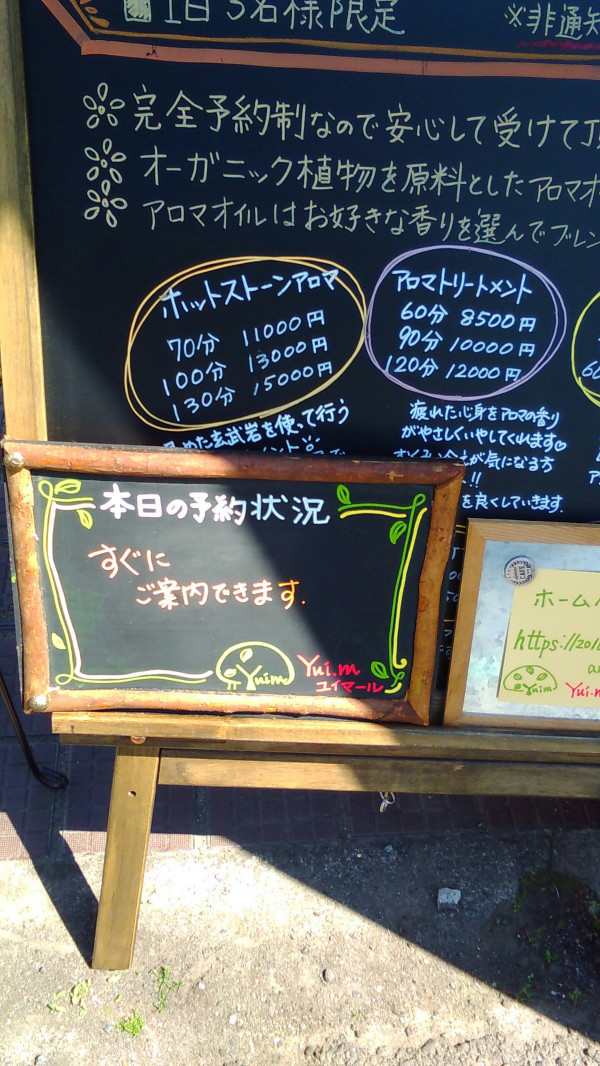 1日3名様限定
※非通知
完全予約制なので安心して受けて
オーガニック植物を原料としたアロマオ
アロマオイルはお好きな香りを選んでブレン
ホットストーンアロマ
70分 11000円
100分 13000円
130分 15000円
アロマトリートメント
60分 8500円
90分 10000円
120分 12000円
た玄武岩を使って行う
疲れた心身をアロマの香り
がやさしくいやしてくれます♡
が気になる方
!!
を良くしていきます.
本日の予約状況
すぐに
ご案内できます.
Yuima
Yui.m
ユイマール
ホーム
https://201
Yuima
Yui.m